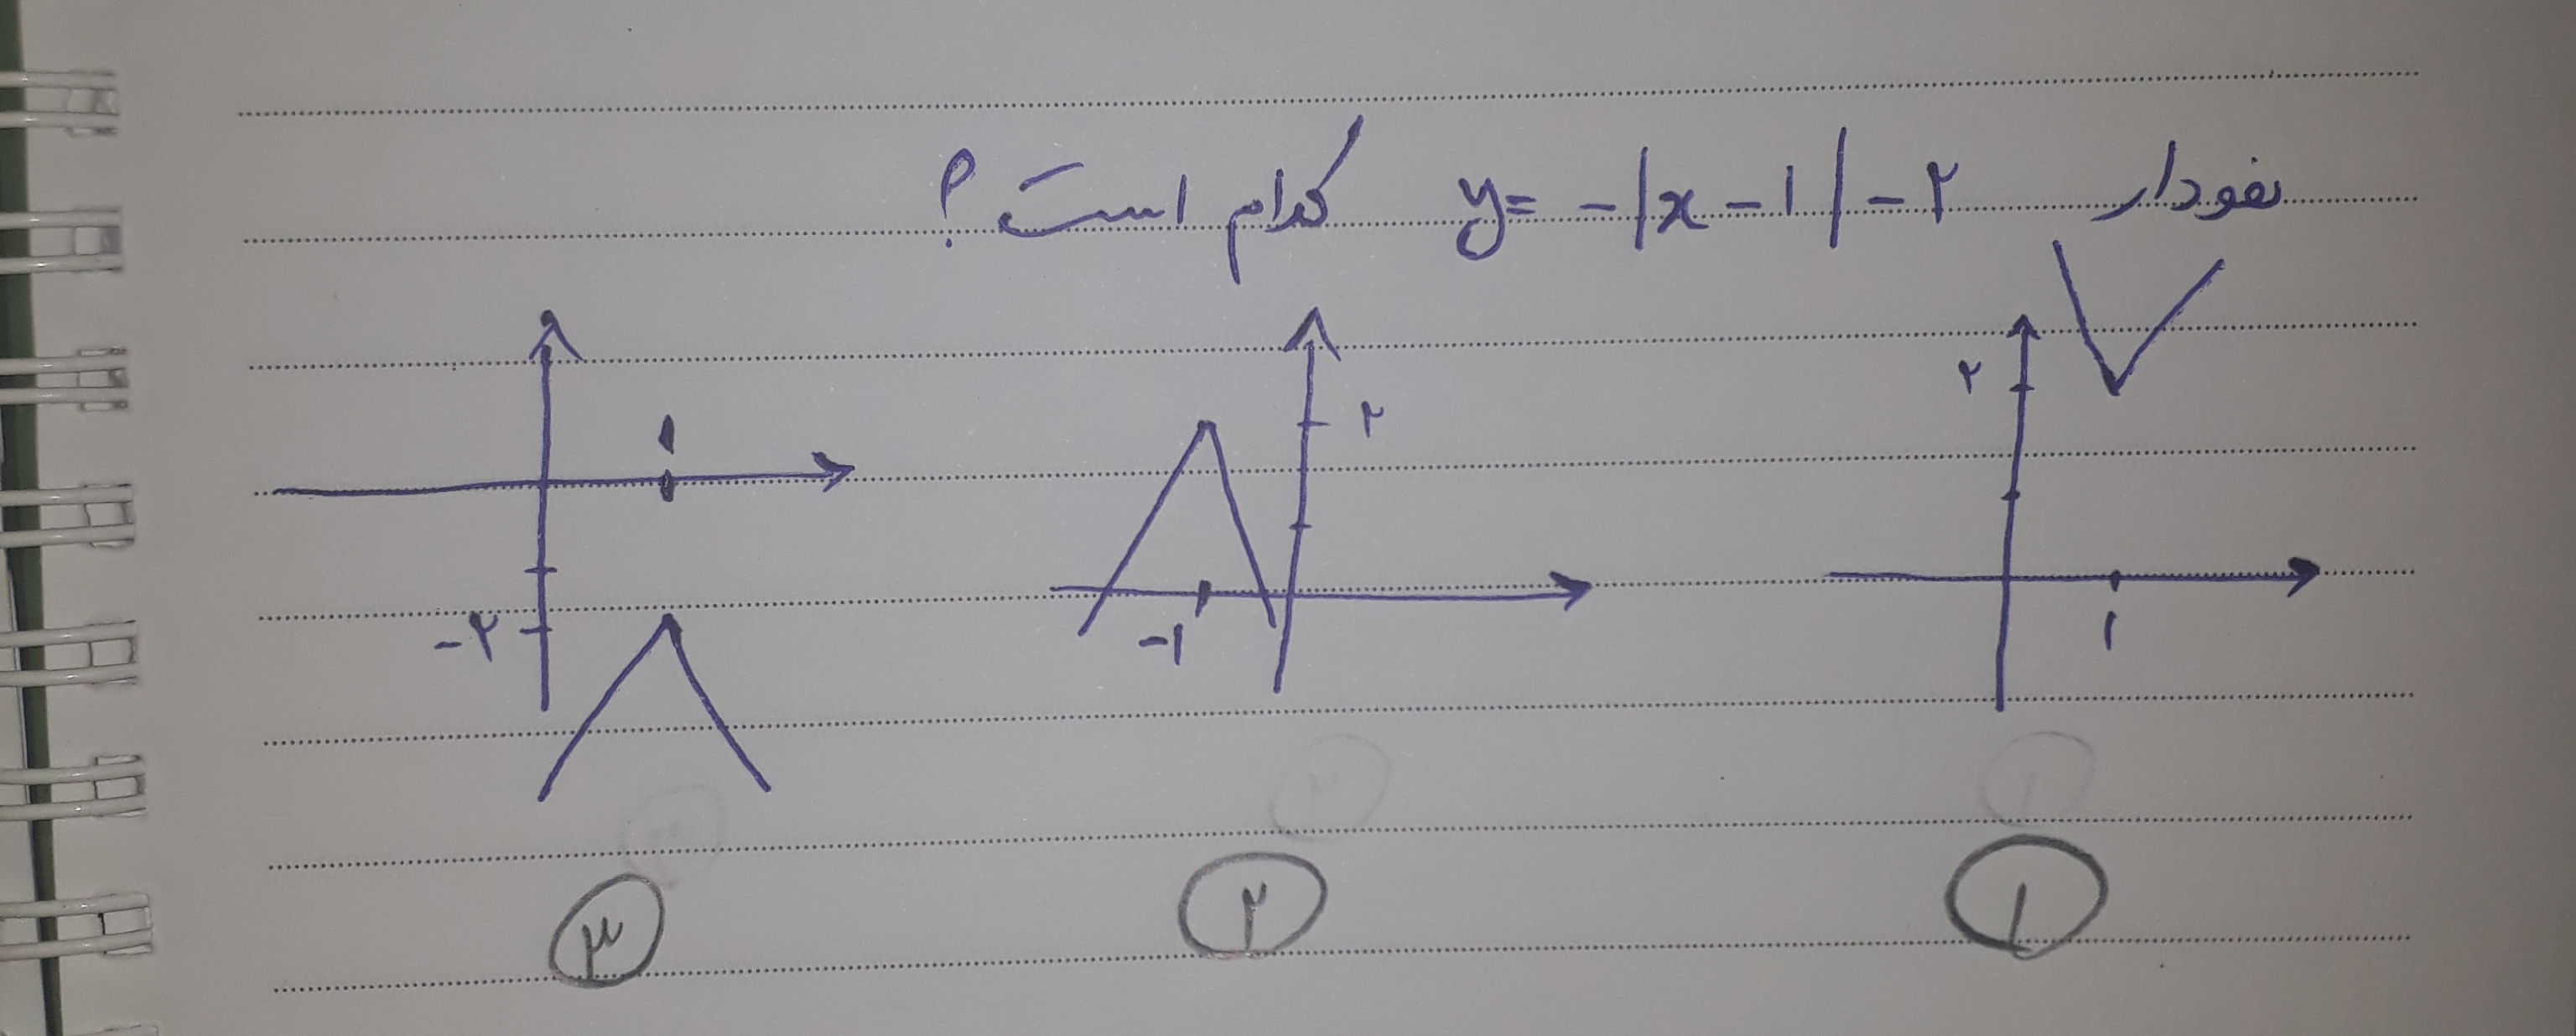 نمودار y = -|x - ۱| - ۲ کدام است ؟
۲
۱
۲
-۱
۱
-۲
۱
۲
۳